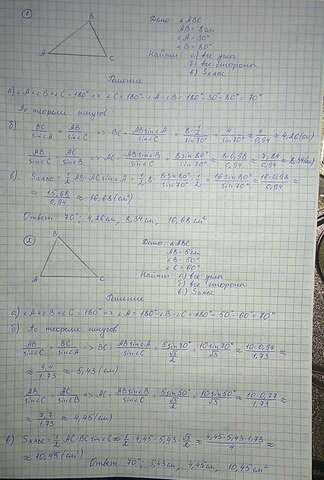 ①
B
A
C
Дано: △ABC
AB = 8 см
∠A = 30°
∠B = 80°
Найти: а) все углы
б) все стороны
в) S△ABC
Решение
а) ∠A + ∠B + ∠C = 180° => ∠C = 180° - ∠A - ∠B = 180° - 30° - 80° = 70°
По теореме синусов
б) BC/sin∠A = AB/sin∠C => BC = AB sin∠A/sin∠C = 8·½/sin70° = 4/sin70° ≈ 4/0,94 ≈ 4,26 (см)
AB/sin∠C = AC/sin∠B => AC = AB sin∠B/sin∠C = 8 sin80°/sin70° ≈ 8·0,98/0,94 ≈ 7,84/0,94 ≈ 8,34 (см)
в) S△ABC = ½ AB·AC sin∠A = ½·8·8 sin80°/sin70°·½ = 16 sin80°/sin70° ≈ 16·0,98/0,94 ≈
≈ 15,68/0,94 ≈ 16,68 (см²)
Ответ: 70°; 4,26 см, 8,34 см, 16,68 см²
②
B
A
C
Дано: △ABC
AB = 5 см
∠B = 50°
∠C = 60°
Найти: а) все углы
б) все стороны
в) S△ABC
Решение
а) ∠A + ∠B + ∠C = 180° => ∠A = 180° - ∠B - ∠C = 180° - 50° - 60° = 70°
б) По теореме синусов
AB/sin∠C = BC/sin∠A => BC = AB sin∠A/sin∠C = 5 sin70°/(√3/2) = 10 sin70°/√3 ≈ 10·0,94/1,73 ≈
≈ 9,4/1,73 ≈ 5,43 (см)
AB/sin∠C = AC/sin∠B => AC = AB sin∠B/sin∠C = 5 sin50°/(√3/2) = 10 sin50°/√3 ≈ 10·0,77/1,73 ≈
≈ 7,7/1,73 ≈ 4,45 (см)
в) S△ABC = ½ AC·BC sin∠C ≈ ½·4,45·5,43·√3/2 ≈ 4,45·5,43·1,73/4 ≈
≈ 10,45 (см²)
Ответ: 70°; 5,43 см, 4,45 см, 10,45 см²